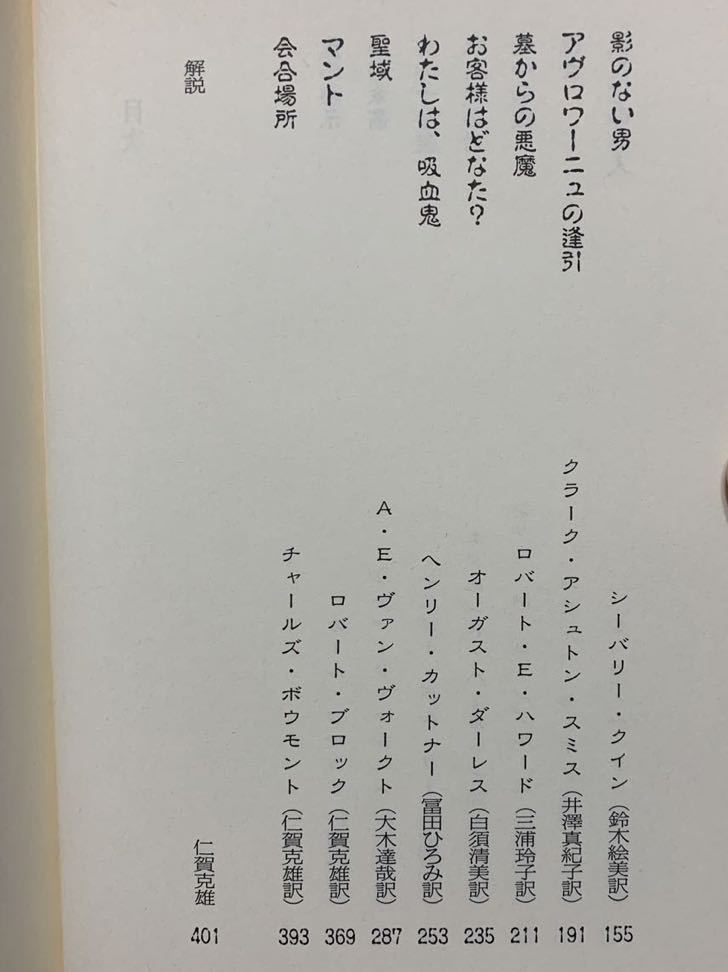 影のない男 シーバリー・クイン（鈴木絵美訳） 155
アヴロワーニュの逢引 クラーク・アシュトン・スミス（井澤真紀子訳） 191
墓からの悪魔 ロバート・E・ハワード（三浦玲子訳） 211
お客様はどなた？ オーガスト・ダーレス（白須清美訳） 235
わたしは、吸血鬼 ヘンリー・カットナー（冨田ひろみ訳） 253
聖域 A・E・ヴァン・ヴォークト（大木達哉訳） 287
マント ロバート・ブロック（仁賀克雄訳） 369
会合場所 チャールズ・ボウモント（仁賀克雄訳） 393
解説 仁賀克雄 401